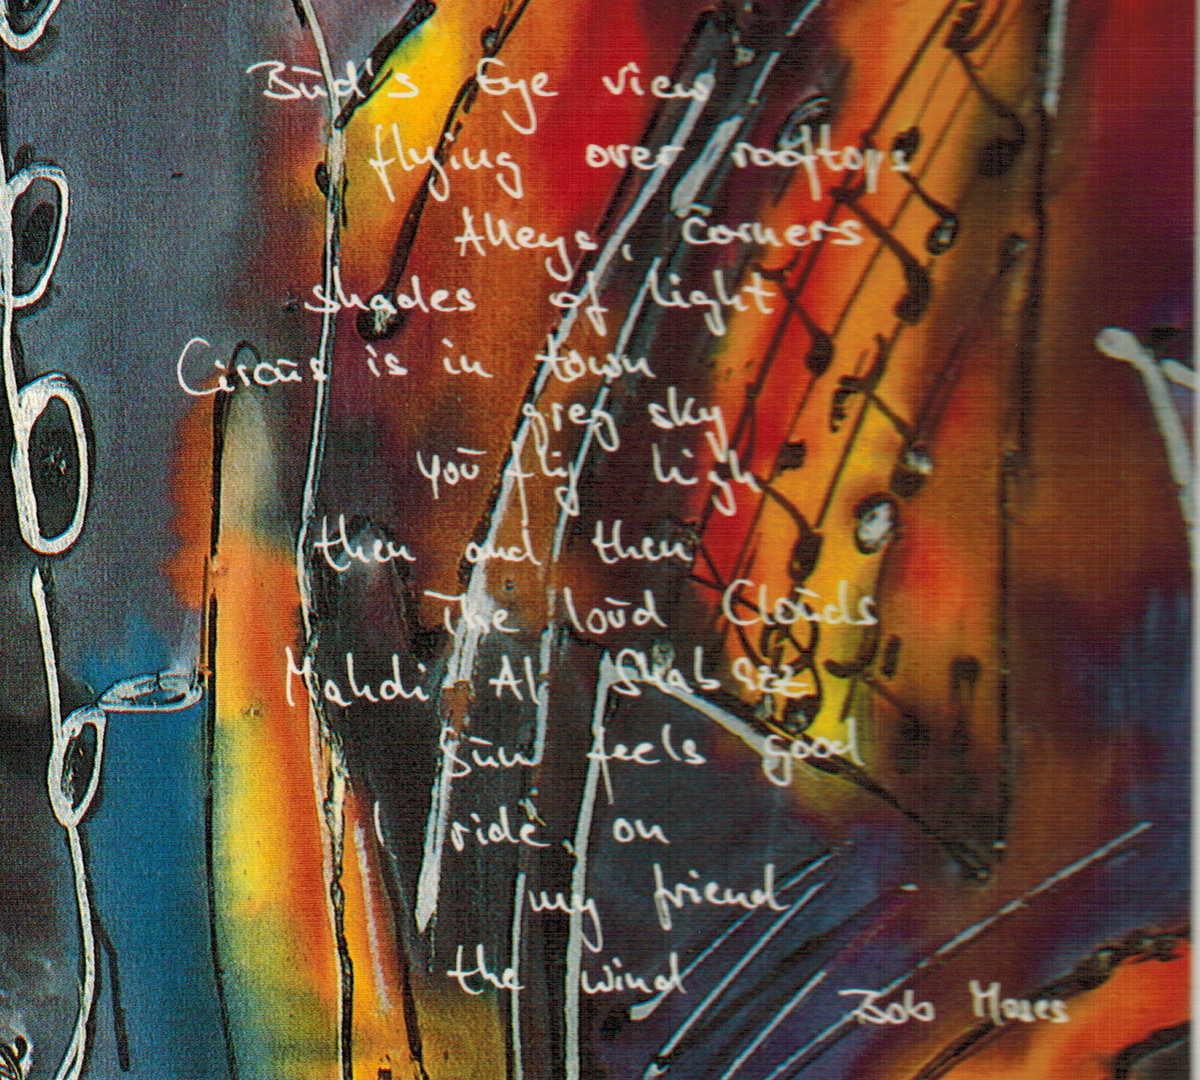 Bud's Eye view
flying over rooftops
Alleys, Corners
shades of light
Circus is in town
grey sky
you fly high
then and then
The loud Clouds
Mahdi Al Shabazz
Sun feels good
I ride on
my friend
the wind
Bob Moses